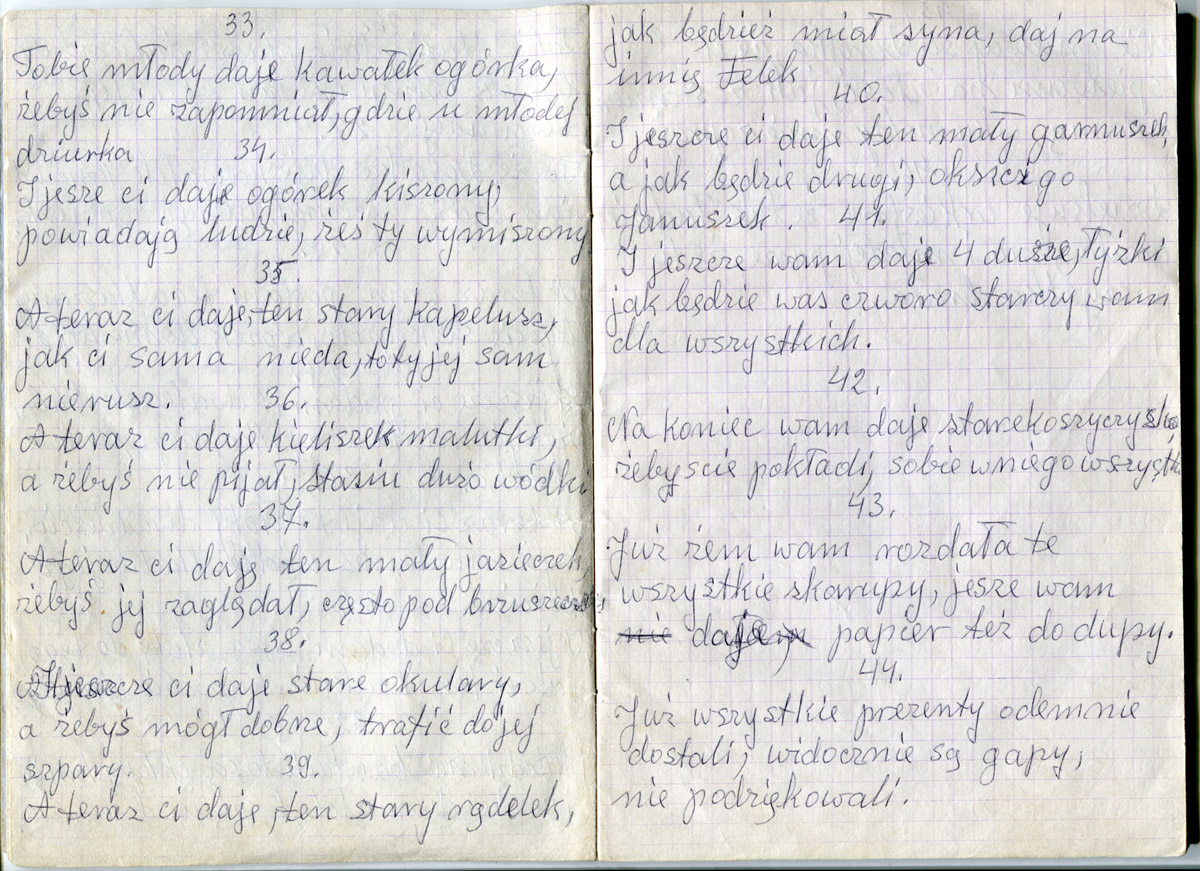 33.
Tobie młody daje kawałek ogórka,
żebyś nie zapomniał, gdzie u młodej
dziurka 34.
I jesze ci daje ogórek kiszony,
powiadają ludzie, żeś ty wymiszony
35.
A teraz ci daje, ten stary kapelusz,
jak ci sama nieda, to ty jej sam
nierusz. 36.
A teraz ci daje kieliszek malutki,
a żebyś nie pijał, stasiu dużo wódki
37.
A teraz ci daję ten mały jasieczek,
żebyś jej zaglądał, często pod
38.
ci daje stare okulary,
a żebyś mógł dobrze, trafić do jej
szpary. 39.
A teraz ci daje, ten stary rądelek,
jak będzież miał syna, daj na
imię Felek
40.
I jeszcze ci daje ten mały garnuszek,
a jak będzie drugi, okszci go
Januszek. 41.
I jeszcze wam daje 4 dusze, łyżki
jak będzie was czworo starczy wam
dla wszystkich.
42.
Na koniec wam daje stare koszyczysko,
żebyscie pokładli, sobie w niego wszystko
43.
Już żem wam rozdała te
wszystkie skarupy, jesze wam
daje, papier też do dupy.
44.
Już wszystkie prezenty odemnie
dostali, widocznie są gapy,
nie podziękowali.